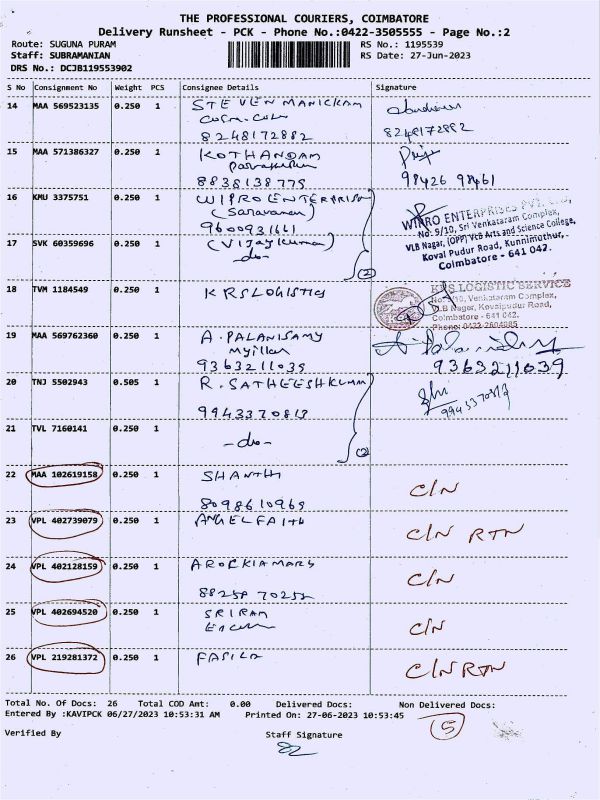 THE PROFESSIONAL COURIERS, COIMBATORE
Delivery Runsheet - PCK - Phone No.:0422-3505555 - Page No.:2
Route: SUGUNA PURAM RS No.: 1195539
Staff: SUBRAMANIAN RS Date: 27-Jun-2023
DRS No.: DCJB119553902
S No Consignment No Weight PCS Consignee Details Signature
14 MAA 569523135 0.250 1 STEVEN MANICKAM
8248172882 8248172882
15 MAA 571386327 0.250 1 KOTHANDAM
8838138775 98426 98461
16 KMU 3375751 0.250 1 WIPRO ENTERPRISES
(Saravanan)
9600931661
WIPRO ENTERPRISES PVT. LTD,
No: 9/10, Sri Venkataram Complex,
VLB Nagar, (OPP) VLB Arts and Science College,
Koval Pudur Road, Kunnimuthur,
Coimbatore - 641 042.
17 SVK 60359696 0.250 1 (Vijaykumar)
-do-
(2)
18 TVM 1184549 0.250 1 KRS LOGISTICS
KRS LOGISTIC SERVICE
No:9/10, Venkataram Complex,
VLB Nagar, Kovaipudur Road,
Coimbatore - 641 042.
Phone: 0422-2604085
19 MAA 569762360 0.250 1 A. PALANISAMY
9363211039 9363211039
20 TNJ 5502943 0.505 1 R. SATHEESHKUMAR
9943370813 9943370813
21 TVL 7160141 0.250 1
-do-
(2)
22 MAA 102619158 0.250 1 SHANTHI
8098610965 C/N
23 VPL 402739079 0.250 1 ANGEL FAITH
C/N RTN
24 VPL 402128159 0.250 1 AROCKIAMARY
88258 70255 C/N
25 VPL 402694520 0.250 1 SRIRAM
C/N
26 VPL 219281372 0.250 1 FASILA
C/N RTN
Total No. Of Docs: 26 Total COD Amt: 0.00 Delivered Docs: Non Delivered Docs:
Entered By :KAVIPCK 06/27/2023 10:53:31 AM Printed On: 27-06-2023 10:53:45
5
Verified By Staff Signature